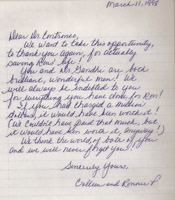 March 11, 1998
Dear Dr.
We want to take this opportunity,
to thank you again, for actually
saving Ron's life!
You and Dr. Gandhi are both
brilliant, wonderful men! We
will always be indebted to you
for everything you have done for Ron!
If you had charged a million
dollars, it would have been worth it!
(We couldn't have paid that much, but
it would have been worth it, anyway!)
We think the world of both of you
and we will never forget you!
Sincerely Yours,
Colleen and Ronnie P